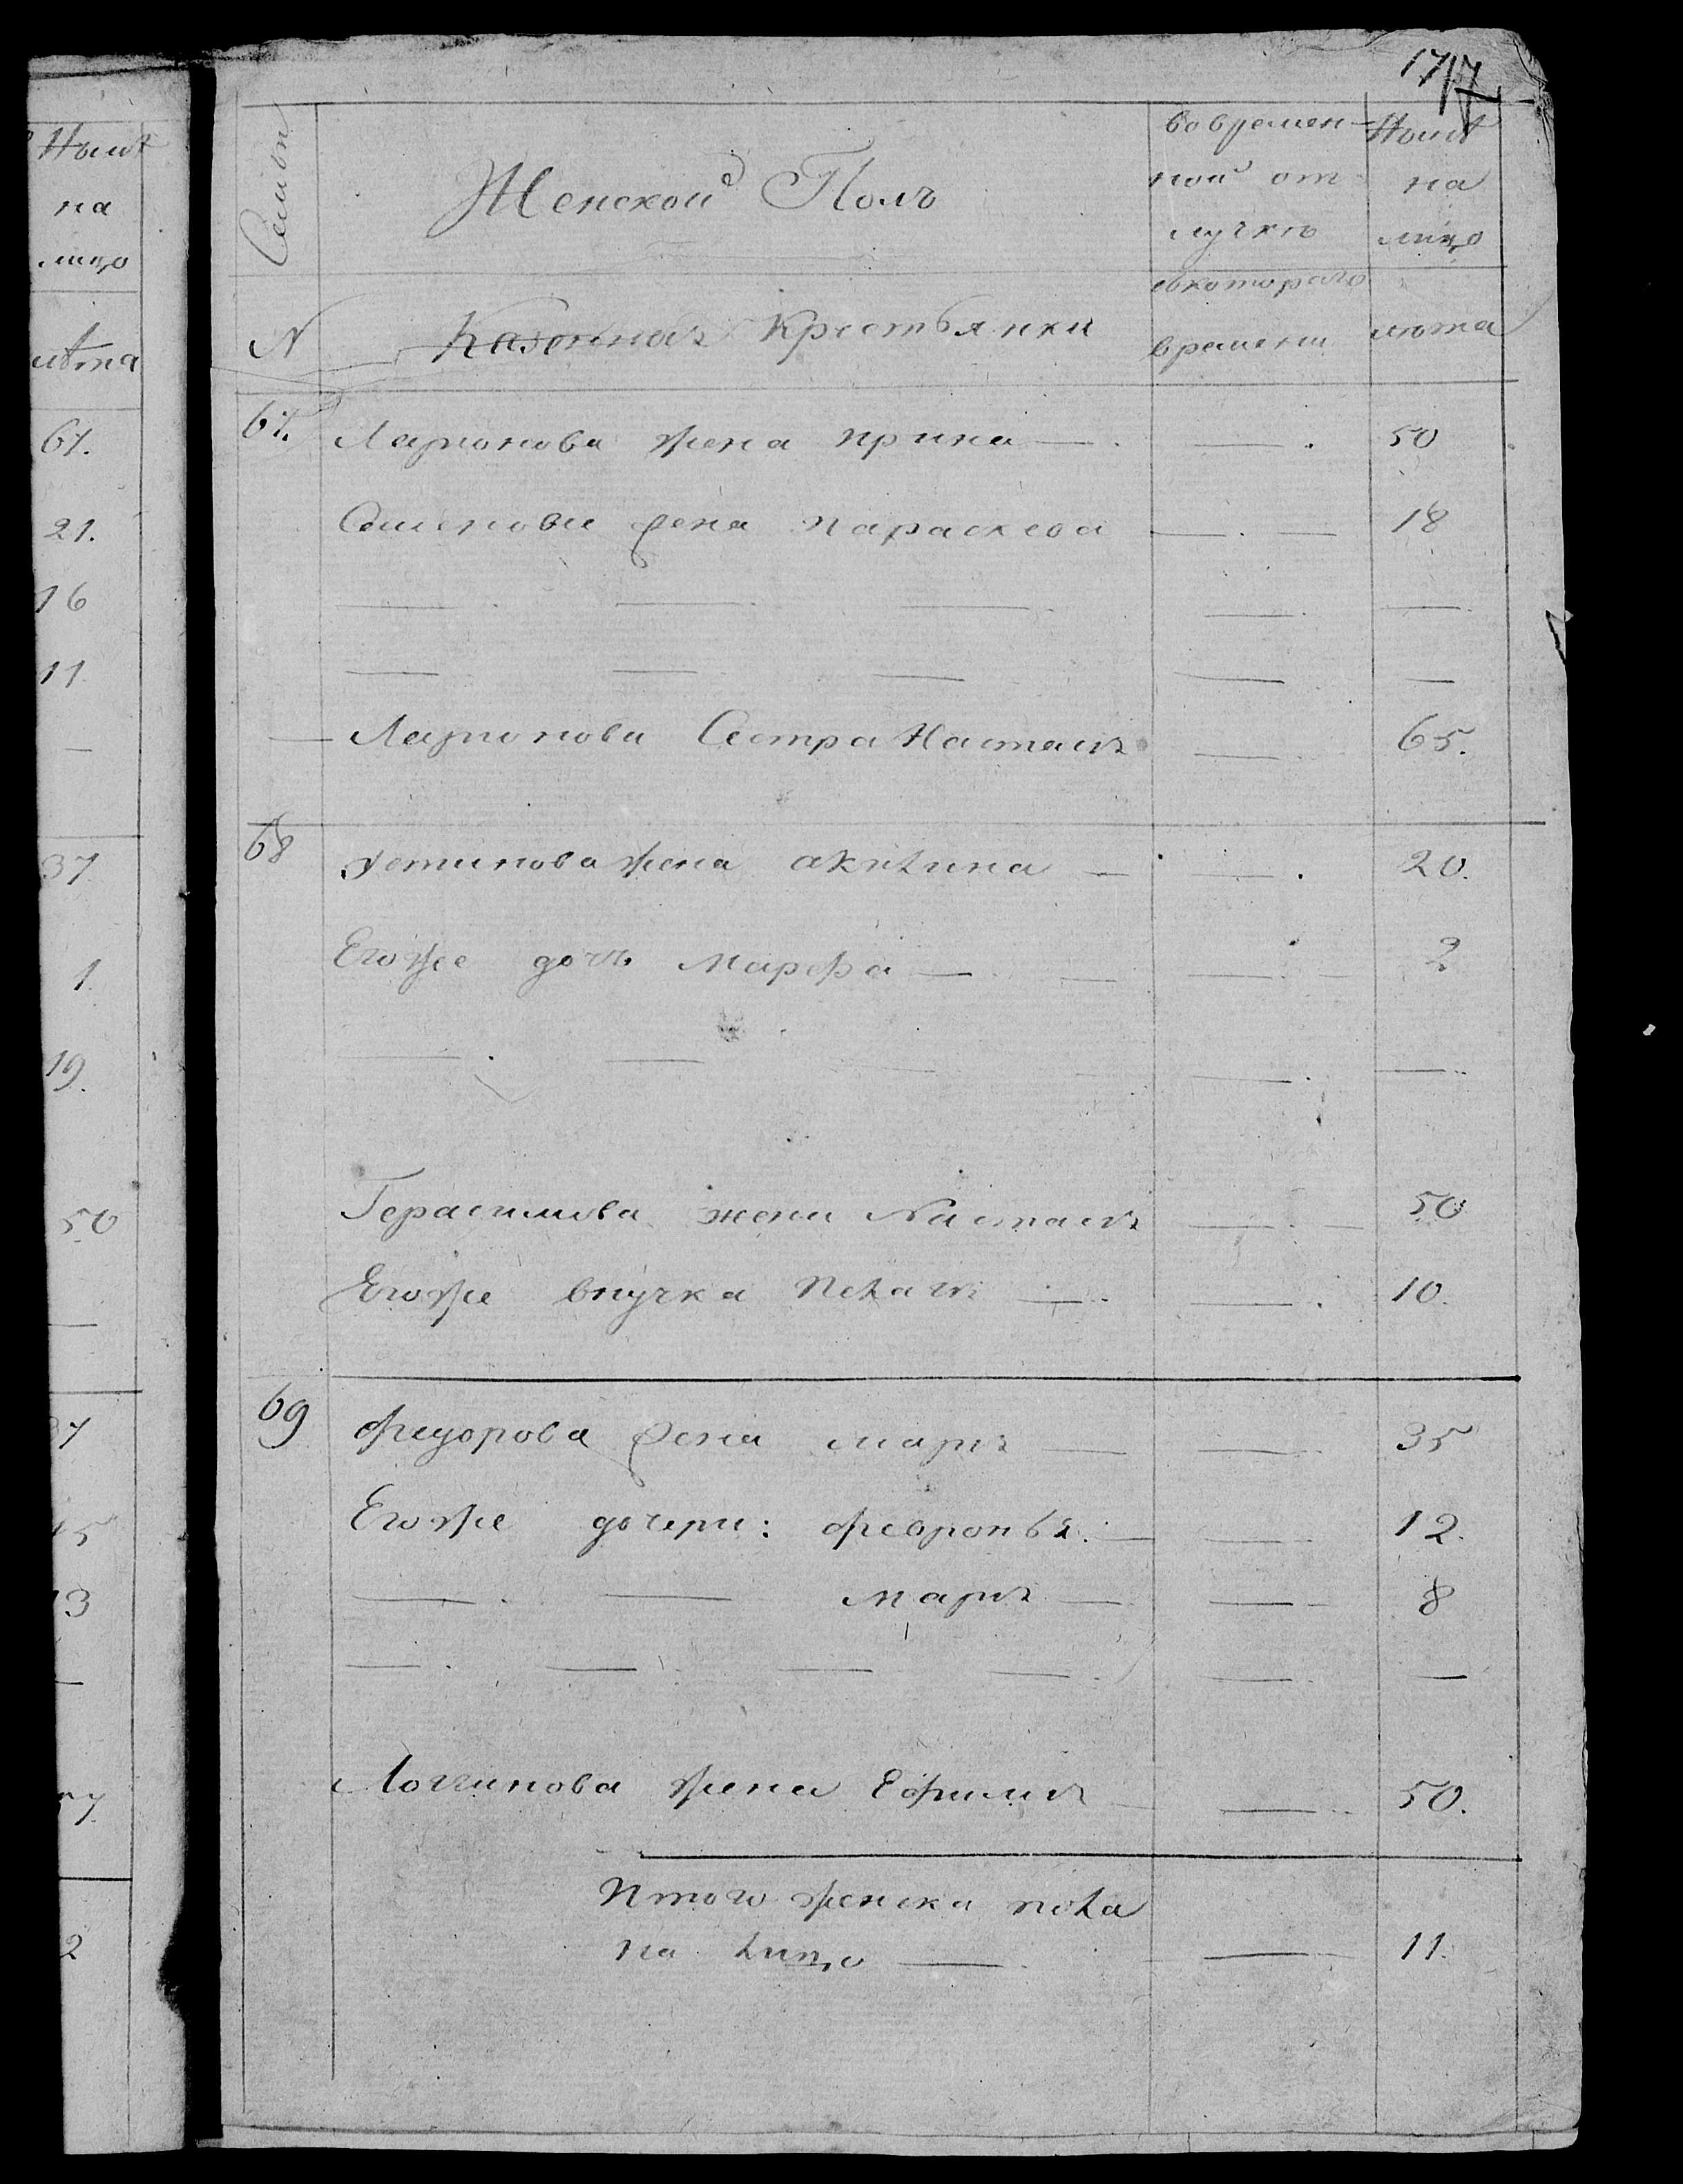 Нынѣ
на
лицо
лѣта
67.
21.
16
11
37
1.
19.
50
2
177
Семьи
Женской Полъ
во времен-
ной от
лучкѣ
Нынѣ
на
лицо
N
Казенная Крестьянки
съкотораго
времени
лѣта
67. Ларионова жена ирина — 50
Семенова жена параскева — 18
Ларионова Сестра Настасья — 65.
68 Устинова жена акулина — 20.
Егоже дочь Марфа — 2
Герасимова жена Настасья — 50
Егоже внучка Пелагея — 10.
69 Федорова жена марья — 35
Егоже дочери: февронья — 12.
марья — 8
Логинова жена Ефимья — 50.
Итого женска пола
на лицо — 11.